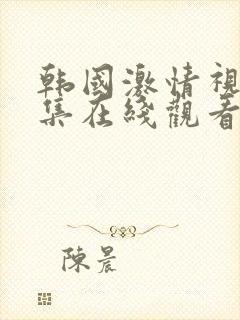 韩國激情視
集在綫觀看
陳晨